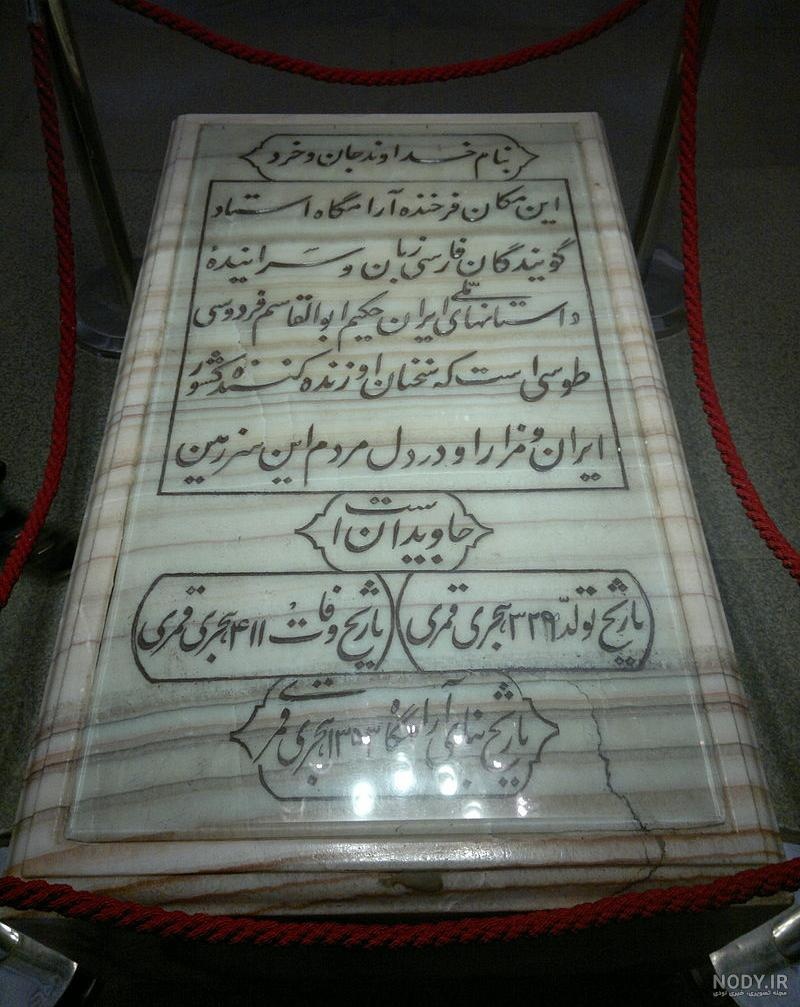 بنام خداوند جان و خرد
این مکان فرخنده آرامگاه استاد
گویندگان فارسی زبان و سرایندهٔ
داستانهای ملّی ایران حکیم ابوالقاسم فردوسی
طوسی است که سخنان او زنده کنندهٔ کشور
ایران و مزار او در دل مردم این سرزمین
جاویدان است
تاریخ تولّد ۳۲۹ هجری قمری
تاریخ وفات ۴۱۱ هجری قمری
تاریخ بنای آرامگاه ۱۳۵۳ هجری قمری
NODY.IR
مجله تصویری، خبری نودی